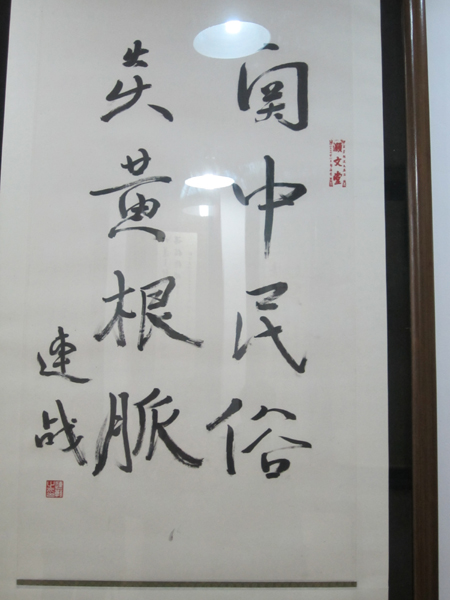 関中民俗
炎黄根脈
連战